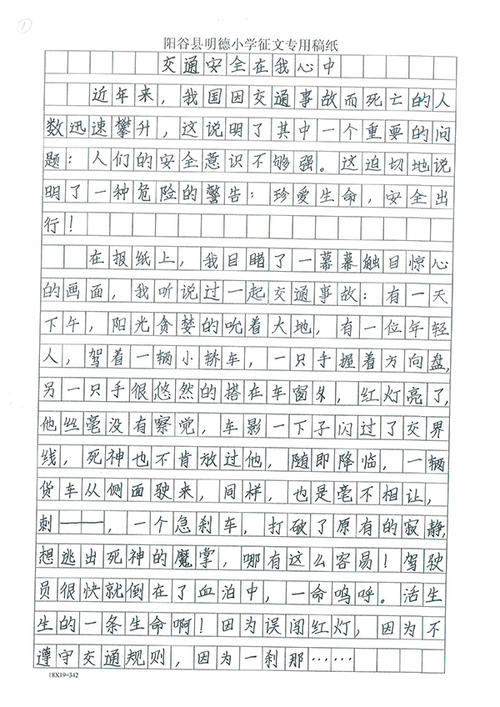 1
阳谷县明德小学征文专用稿纸
交通安全在我心中
近年来，我国因交通事故而死亡的人
数迅速攀升，这说明了其中一个重要的问
题：人们的安全意识不够强。这迫切地说
明了一种危险的警告：珍爱生命，安全出
行！
在报纸上，我目睹了一幕幕触目惊心
的画面，我听说过一起交通事故：有一天
下午，阳光贪婪的吮着大地，有一位年轻
人，驾着一辆小轿车，一只手握着方向盘，
另一只手很悠然的搭在车窗外，红灯亮了，
他丝毫没有察觉，车影一下子闪过了交界
线，死神也不肯放过他，随即降临，一辆
货车从侧面驶来，同样，也是毫不相让，
刺——，一个急刹车，打破了原有的寂静，
想逃出死神的魔掌，哪有这么容易！驾驶
员很快就倒在了血泊中，一命呜呼。活生
生的一条生命啊！因为误闯红灯，因为不
遵守交通规则，因为一刹那……
18X19=342